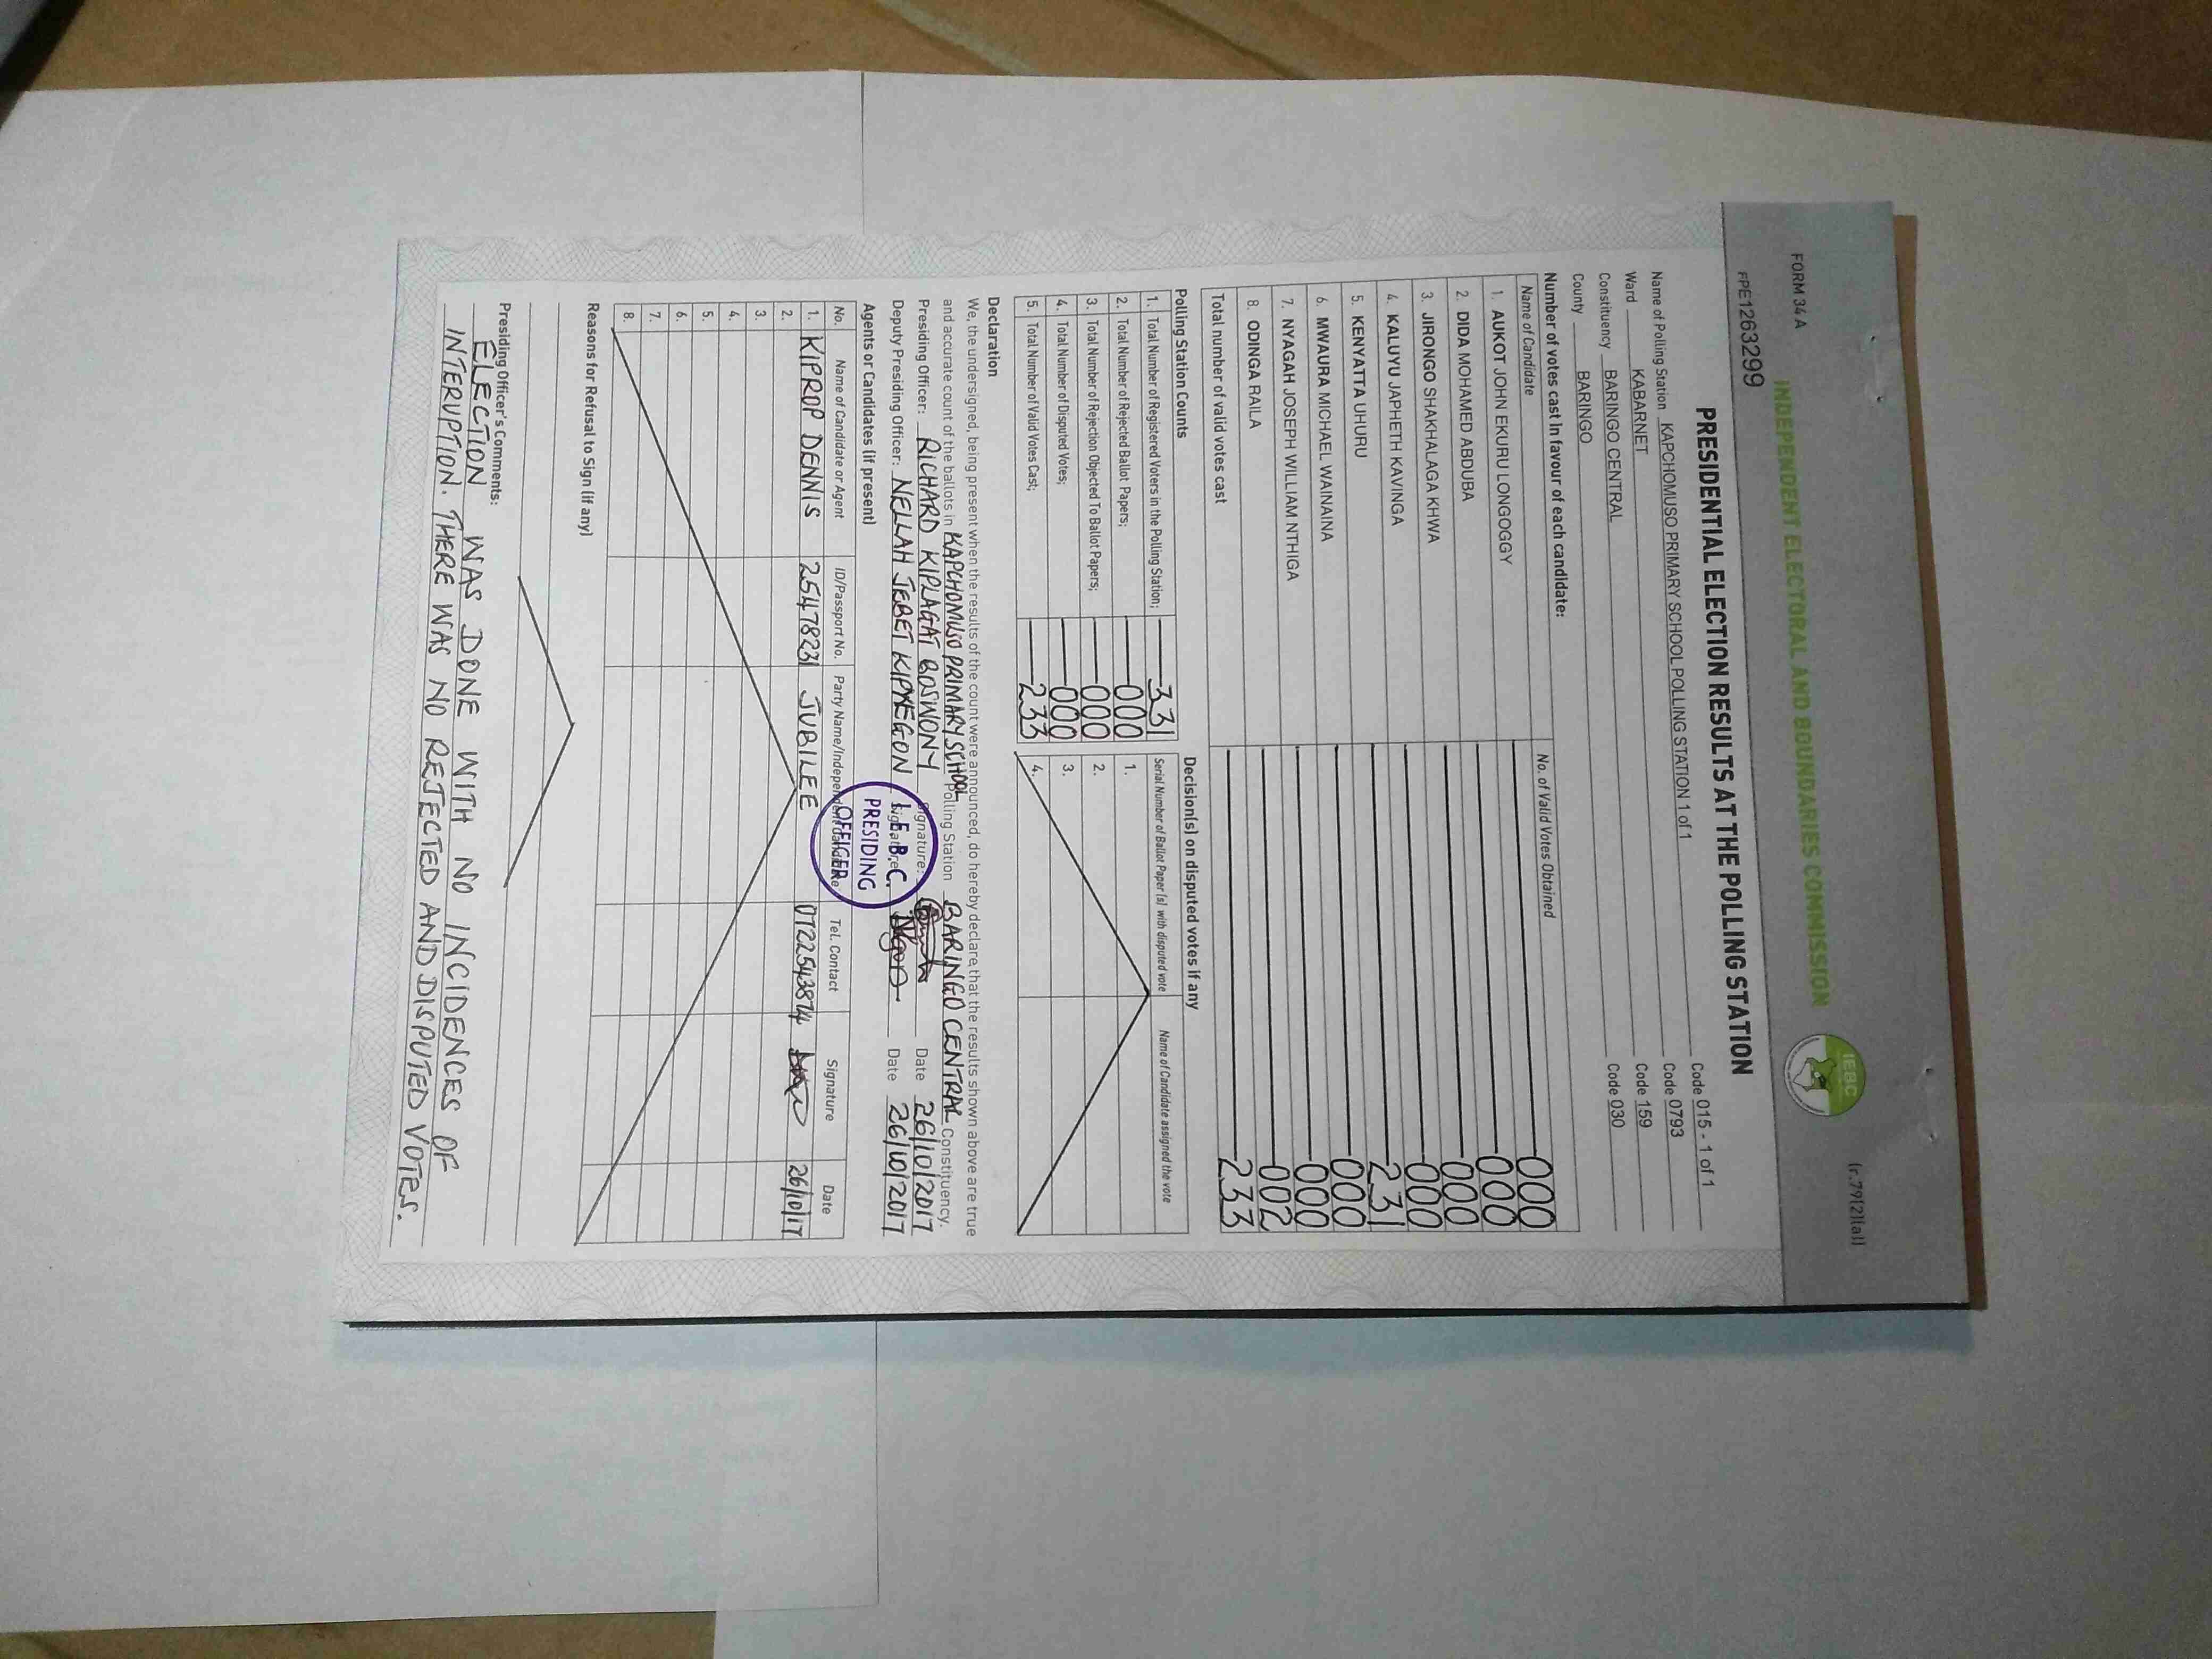 FORM 34 A
(r.79(2)(a))
INDEPENDENT ELECTORAL AND BOUNDARIES COMMISSION
IEBC
FPE1263299
PRESIDENTIAL ELECTION RESULTS AT THE POLLING STATION
Name of Polling Station KAPCHOMUSO PRIMARY SCHOOL POLLING STATION 1 of 1 Code 015 - 1 of 1
Ward KABARNET Code 0793
Constituency BARINGO CENTRAL Code 159
County BARINGO Code 030
Number of votes cast in favour of each candidate:
Name of Candidate No. of Valid Votes Obtained
1. AUKOT JOHN EKURU LONGOGGY 000
2. DIDA MOHAMED ABDUBA 000
3. JIRONGO SHAKHALAGA KHWA 000
4. KALUYU JAPHETH KAVINGA 000
5. KENYATTA UHURU 231
6. MWAURA MICHAEL WAINAINA 000
7. NYAGAH JOSEPH WILLIAM NTHIGA 000
8. ODINGA RAILA 002
Total number of valid votes cast 233
Polling Station Counts Decision(s) on disputed votes if any
1. Total Number of Registered Voters in the Polling Station; 331
2. Total Number of Rejected Ballot Papers; 000
3. Total Number of Rejection Objected To Ballot Papers; 000
4. Total Number of Disputed Votes; 000
5. Total Number of Valid Votes Cast; 233
Serial Number of Ballot Paper (s) with disputed vote Name of Candidate assigned the vote
1.
2.
3.
4.
Declaration
We, the undersigned, being present when the results of the count were announced, do hereby declare that the results shown above are true
and accurate count of the ballots in KAPCHOMUSO PRIMARY SCHOOL Polling Station BARINGO CENTRAL Constituency.
Presiding Officer: RICHARD KIPLAGAT BOSWONY Signature: Date 26/10/2017
Deputy Presiding Officer: NELLAH JEBET KIPYEGON Signature: Date 26/10/2017
I.E.B.C.
PRESIDING
OFFICER
Agents or Candidates (if present)
No. Name of Candidate or Agent ID/Passport No. Party Name/Independent Candidate Tel. Contact Signature Date
1. KIPROP DENNIS 25478231 JUBILEE 0722543874 26/10/17
2.
3.
4.
5.
6.
7.
8.
Reasons for Refusal to Sign (if any)
Presiding Officer's Comments:
ELECTION WAS DONE WITH NO INCIDENCES OF
INTERUPTION. THERE WAS NO REJECTED AND DISPUTED VOTES.